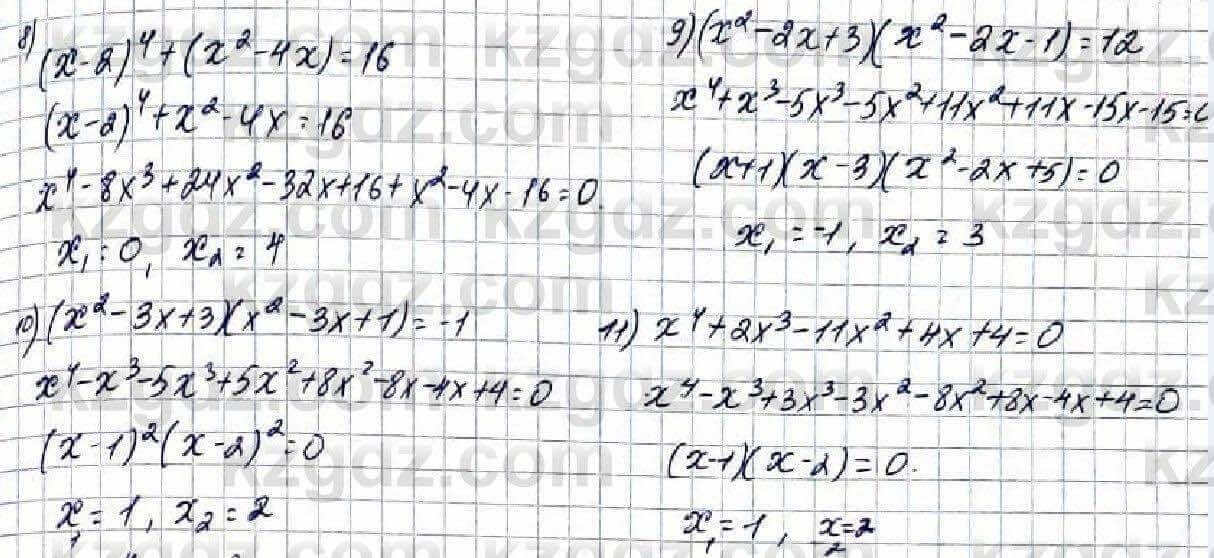 8) (x-2)⁴+(x²-4x)=16
(x-2)⁴+x²-4x=16
x⁴-8x³+24x²-32x+16+x²-4x-16=0
x₁=0, x₂=4
9) (x²-2x+3)(x²-2x-1)=12
x⁴+x³-5x³-5x²+11x²+11x-15x-15=0
(x+1)(x-3)(x²-2x+5)=0
x₁=-1, x₂=3
10) (x²-3x+3)(x²-3x+1)=-1
x⁴-x³-5x³+5x²+8x²-8x-4x+4=0
(x-1)²(x-2)²=0
x₁=1, x₂=2
11) x⁴+2x³-11x²+4x+4=0
x⁴-x³+3x³-3x²-8x²+8x-4x+4=0
(x-1)(x-2)=0.
x₁=1, x₂=2
kzgdz.com